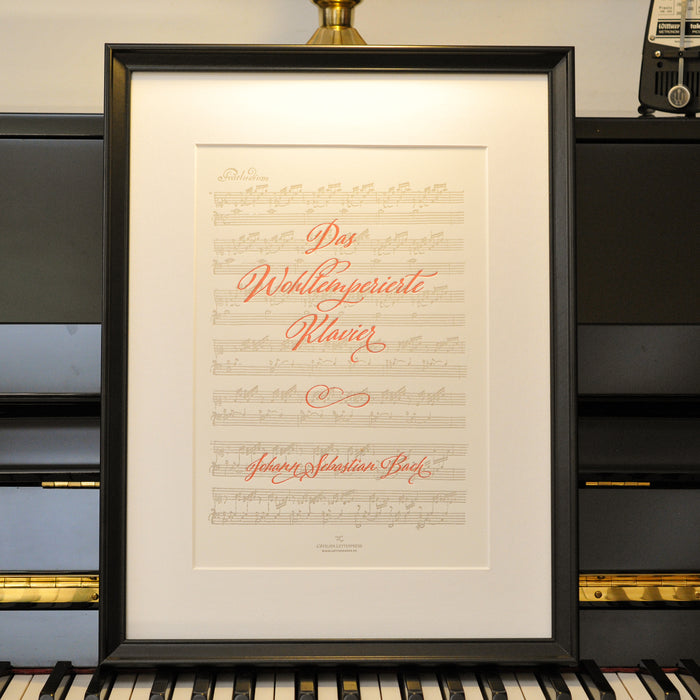 Praeludium
Das
Wohltemperierte
Klavier
Johann Sebastian Bach